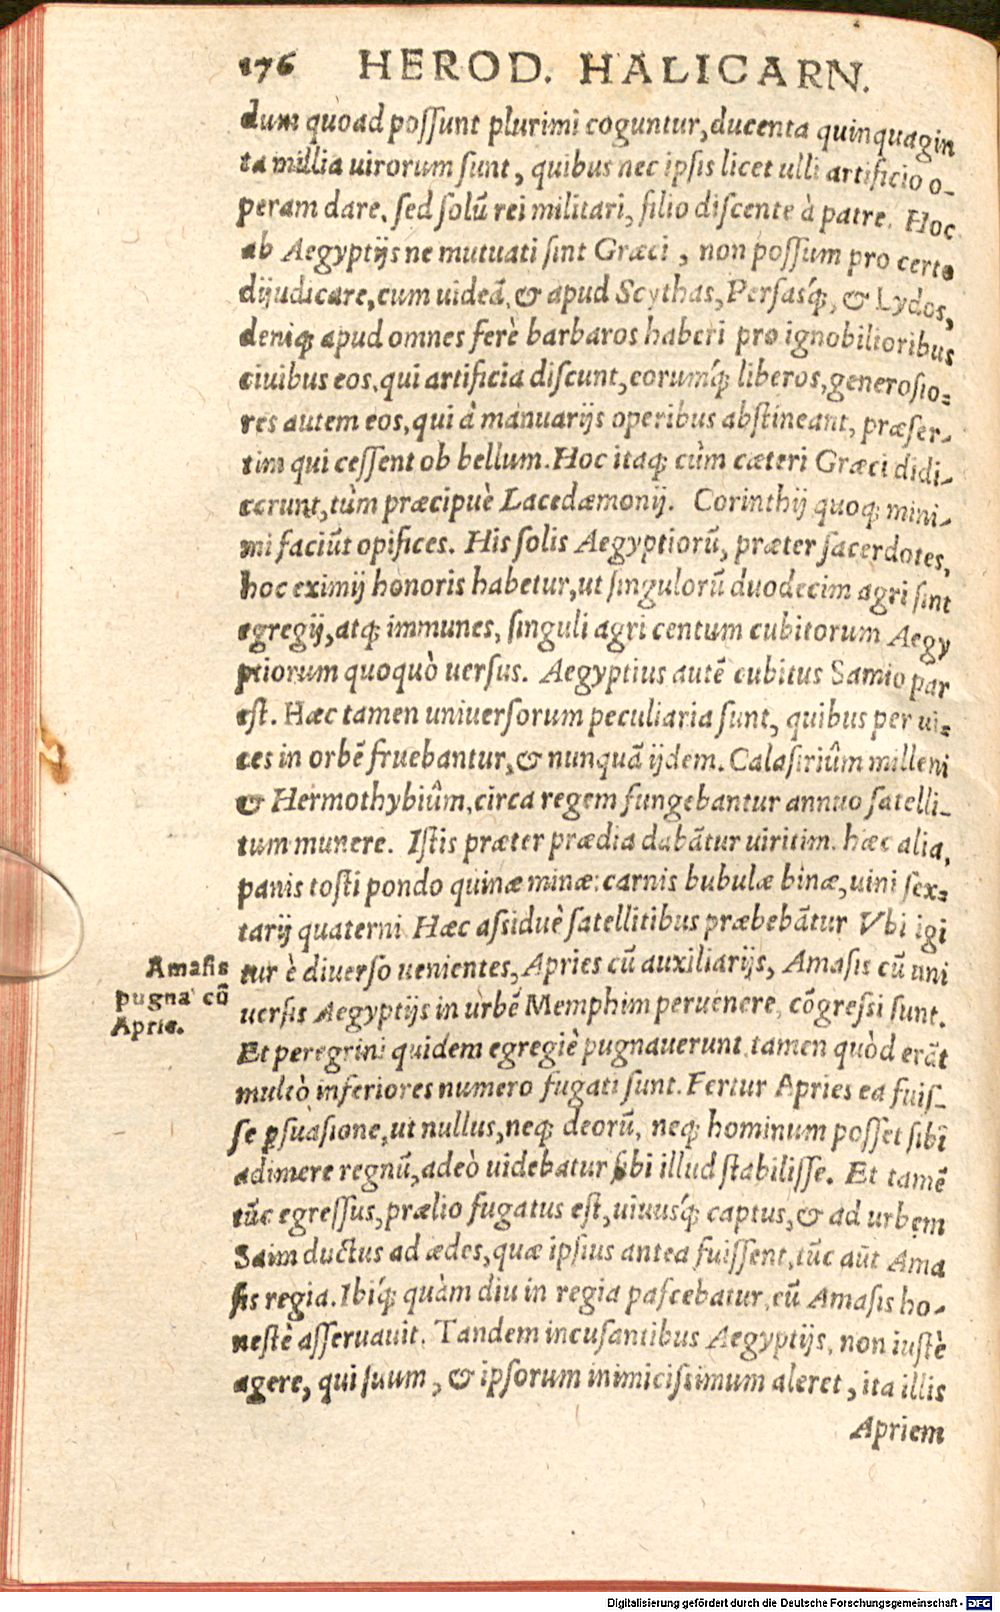 176 HEROD. HALICARN.
dum quoad poſſunt plurimi coguntur, ducenta quinquagin
ta millia uirorum ſunt, quibus nec ipſis licet ulli artificio o-
peram dare, ſed ſolũ rei militari, filio diſcente à patre. Hoc
ab Aegyptijs ne mutuati ſint Græci, non poſſum pro certo
dijudicare, cum uideã, & apud Scythas, Perſasq́;, & Lydos,
deniq; apud omnes ferè barbaros haberi pro ignobilioribus
ciuibus eos, qui artificia diſcunt, eorumq́; liberos, generoſio-
res autem eos, qui à manuarijs operibus abſtineant, præſer-
tim qui ceſſent ob bellum. Hoc itaq; cùm cæteri Græci didi-
cerunt, tùm præcipuè Lacedæmonij. Corinthij quoq; mini-
mi faciũt opifices. His ſolis Aegyptiorũ, præter ſacerdotes,
hoc eximij honoris habetur, ut ſingulorũ duodecim agri ſint
egregij, atq; immunes, ſinguli agri centum cubitorum Aegy
ptiorum quoquò uerſus. Aegyptius autẽ cubitus Samio par
eſt. Hæc tamen uniuerſorum peculiaria ſunt, quibus per ui-
ces in orbẽ fruebantur, & nunquã ijdem. Calaſiriûm milleni
& Hermothybiûm, circa regem fungebantur annuo ſatelli-
tum munere. Iſtis præter prædia dabãtur uiritim hæc alia,
panis toſti pondo quinæ minæ: carnis bubulæ binæ, uini ſex-
tarij quaterni. Hæc aſsiduè ſatellitibus præbebãtur Vbi igi
tur è diuerſo uenientes, Apries cũ auxiliarijs, Amaſis cũ uni
uerſis Aegyptijs in urbẽ Memphim peruenere, cõgreſſi ſunt.
Amaſis
pugna cũ
Aprie.
Et peregrini quidem egregiè pugnauerunt, tamen quòd erãt
multò inferiores numero fugati ſunt. Fertur Apries ea fuiſ-
ſe ꝑſuaſione, ut nullus, neq; deorũ, neq; hominum poſſet ſibi
adimere regnũ, adeò uidebatur ſibi illud ſtabiliſſe. Et tamẽ
tũc egreſſus, prælio fugatus eſt, uiuusq́; captus, & ad urbem
Saim ductus ad ædes, quæ ipſius antea fuiſſent, tũc aũt Ama
ſis regia. Ibiq́; quàm diu in regia paſcebatur, eũ Amaſis ho-
neſtè aſſeruauit. Tandem incuſantibus Aegyptijs, non iuſtè
agere, qui ſuum, & ipſorum inimiciſsimum aleret, ita illis
Apriem
Digitalisierung gefördert durch die Deutsche Forschungsgemeinschaft - DFG